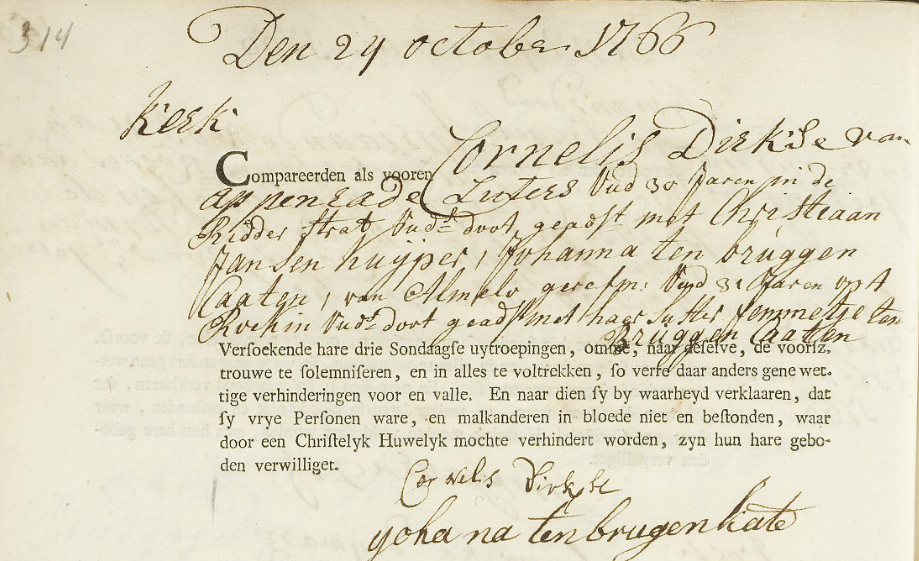 314
Den 24 october 1766
Kerk
Compareerden als vooren Cornelis Dirkse van
appenrade Luters Oud 30 Jaren in de
Ridder straat Oud. doot geadst met Christiaan
Jansen huijper, Johanna ten bruggen
Caaten, van Almelo geref. Oud 31 Jaren op 't
Rockin Oud. doot geadst met haer suster Jemmetje ten
Bruggen Caaten
Verſoekende hare drie Sondaagſe uytroepingen, omme, naar deſelve, de voorſz.
trouwe te ſolemniſeren, en in alles te voltrekken, ſo verſe daar anders gene wet-
tige verhinderingen voor en valle. En naar dien ſy by waarheyd verklaaren, dat
ſy vrye Perſonen ware, en malkanderen in bloede niet en beſtonden, waar
door een Chriſtelyk Huwelyk mochte verhindert worden, zyn hun hare gebo-
den verwilliget.
Cornelis Dirkse
yohana ten brugen kate